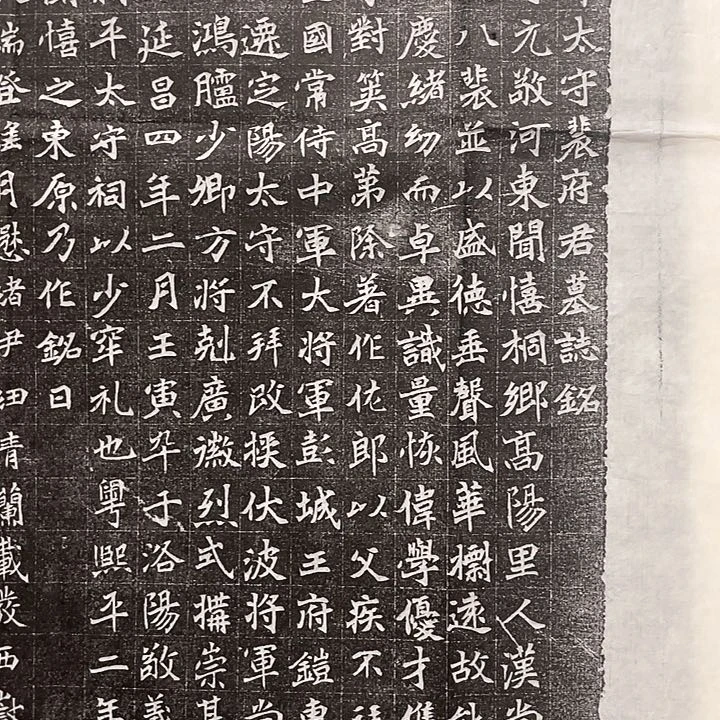 太守裴府君墓誌銘
元敬河東聞憘桐鄉高陽里人漢尚
八裴並以盛德垂聲風華遠故
慶緒幼而卓異識量恢偉學優才儁
對筴高第除著作佐郎以父疾不拜
國常侍中軍大將軍彭城王府鎧
遷定陽太守不拜改授伏波將軍尚
鴻臚少卿方將剋廣徽烈式搆崇基
延昌四年二月壬寅卒于洛陽敬義
平太守祠以少窂礼也粵熙平二年
憘之東原乃作銘曰
登月慰緒尹清蘭載發西